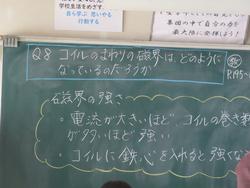 学校生活をめざす。
自ら学ぶ 思いやる
行動する
集団の中で自分の力を
最大限に発揮しよう!
Q8 コイルのまわりの磁界は、どのように
なっているのだろうか
P.195~
磁界の強さ
・電流が大きいほど、コイルの巻き数
が多いほど強い
・コイルに鉄心を入れると強くな